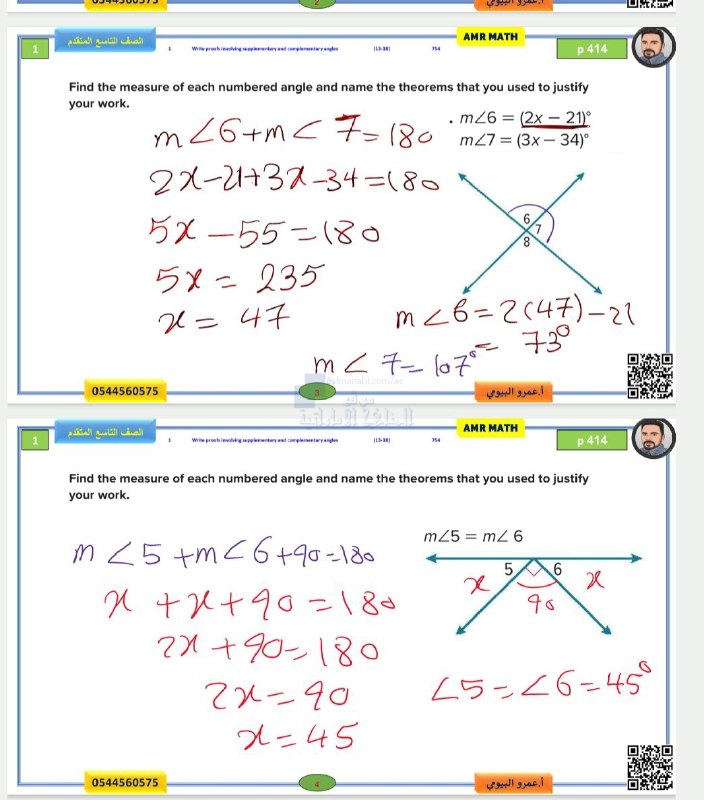 0544560575
2
أ.عمرو البيومي
1
الصف التاسع المتقدم
1 Write proofs involving supplementary and complementary angles (13-18) 754
AMR MATH
p 414
Find the measure of each numbered angle and name the theorems that you used to justify
your work.
m∠6 + m∠7 = 180
. m∠6 = (2x − 21)°
m∠7 = (3x − 34)°
2x-21+3x-34=180
5x - 55 = 180
5x = 235
x = 47
6
7
8
m∠6 = 2(47) - 21
= 73°
m∠7 = 107°
almanahj.com/ae
موقع
المناهج الإماراتية
0544560575
3
أ.عمرو البيومي
1
الصف التاسع المتقدم
1 Write proofs involving supplementary and complementary angles (13-18) 754
AMR MATH
p 414
Find the measure of each numbered angle and name the theorems that you used to justify
your work.
m∠5 = m∠6
m∠5 + m∠6 + 90 = 180
5 6
x x
90
x + x + 90 = 180
2x + 90 = 180
2x = 90
x = 45
∠5 = ∠6 = 45°
0544560575
4
أ.عمرو البيومي